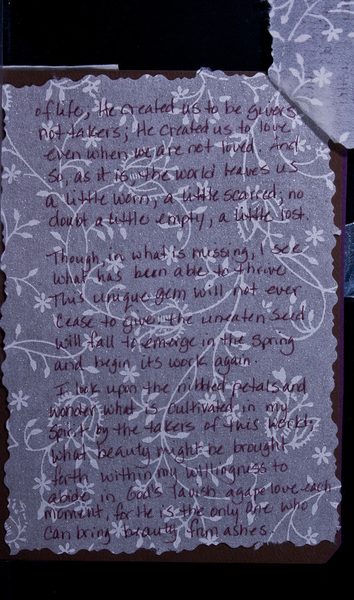 of life, He created us to be givers
not takers; He created us to love
even when we are not loved. And
so, as it is, the world leaves us
a little worn, a little scarred; no
doubt a little empty, a little lost.
Though, in what is missing, I see
what has been able to thrive
This unique gem will not ever
cease to give the uneaten seed
will fall to emerge in the spring
and begin its work again.
I look upon the nibbled petals and
wonder what is cultivated in my
spirit by the takers of this world;
what beauty might be brought
forth within my willingness to
abide in God's lavish agape love each
moment, for He is the only one who
can bring beauty from ashes.